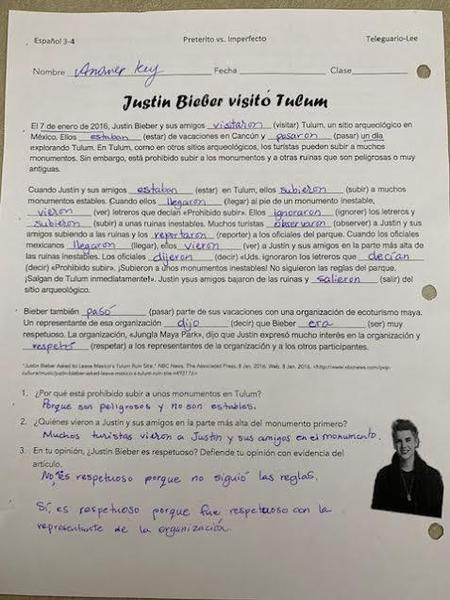 Español 3-4 Preterito vs. Imperfecto Teleguario-Lee
Nombre Answer Key Fecha Clase
Justin Bieber visitó Tulum
El 7 de enero de 2016, Justin Bieber y sus amigos visitaron (visitar) Tulum, un sitio arqueológico en
México. Ellos estaban (estar) de vacaciones en Cancún y pasaron (pasar) un día
explorando Tulum. En Tulum, como en otros sitios arqueológicos, los turistas pueden subir a muchos
monumentos. Sin embargo, está prohibido subir a los monumentos y a otras ruinas que son peligrosas o muy
antiguas.
Cuando Justin y sus amigos estaban (estar) en Tulum, ellos subieron (subir) a muchos
monumentos estables. Cuando ellos llegaron (llegar) al pie de un monumento inestable,
vieron (ver) letreros que decían «Prohibido subir». Ellos ignoraron (ignorer) los letreros y
subieron (subir) a unas ruinas inestables. Muchos turistas observaron (observer) a Justin y sus
amigos subiendo a las ruinas y los reportaron (reporter) a los oficiales del parque. Cuando los oficiales
mexicanos llegaron (llegar), ellos vieron (ver) a Justin y sus amigos en la parte más alta de
las ruinas inestables. Los oficiales dijeron (decir) «Uds. ignoraron los letreros que decían
(decir) «Prohibido subir». ¡Subieron a unos monumentos inestables! No siguieron las reglas del parque.
¡Salgan de Tulum inmediatamente!». Justin ysus amigos bajaron de las ruinas y salieron (salir) del
sitio arqueológico.
Bieber también pasó (pasar) parte de sus vacaciones con una organización de ecoturismo maya.
Un representante de esa organización dijo (decir) que Bieber era (ser) muy
respetuoso. La organización, «Jungla Maya Park», dijo que Justin expresó mucho interés en la organización y
respetó (respetar) a los representantes de la organización y a los otros participantes.
"Justin Bieber Asked to Leave Mexico's Tulum Ruin Site." NBC News. The Associated Press, 8 Jan. 2016. Web. 8 Jan. 2016.
1. ¿Por qué está prohibido subir a unos monumentos en Tulum?
Porque son peligrosos y no son estables.
2. ¿Quiénes vieron a Justin y sus amigos en la parte más alta del monumento primero?
Muchos turistas vieron a Justin y sus amigos en el monumento.
3. En tu opinión, ¿Justin Bieber es respetuoso? Defiende tu opinión con evidencia del
artículo.
No es respetuoso porque no siguió las reglas.
Sí, es respetuoso porque fue respetuoso con la
representante de la organización.